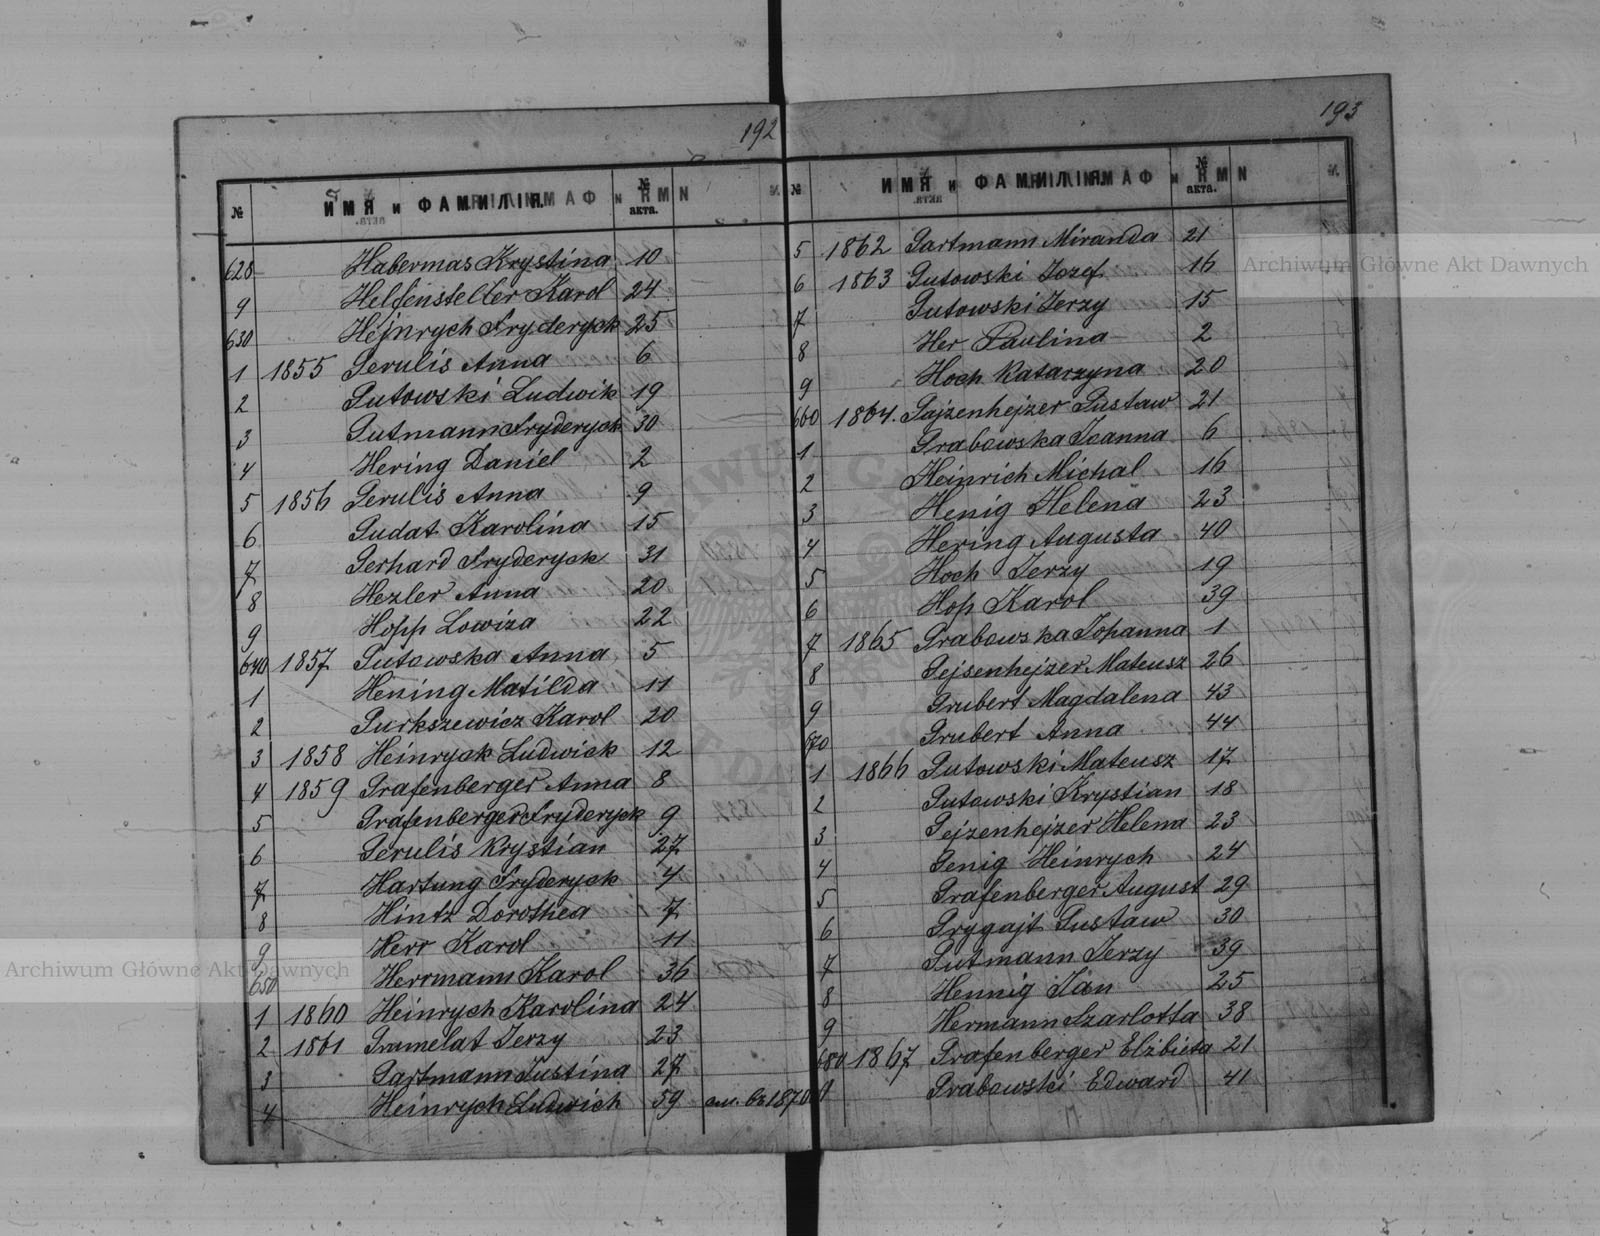 192
№ ИМЯ и ФАМИЛІЯ. № акта.
628 Habermas Krystina 10
9 Helfensteller Karol 24
630 Hejnrych Fryderyck 25
1 1855 Gerulis Anna 6
2 Gutowski Ludwik 19
3 Gutmann Fryderyck 30
4 Hering Daniel 2
5 1856 Gerulis Anna 9
6 Gudat Karolina 15
7 Gerhard Fryderyck 31
8 Hezler Anna 20
9 Hopp Lowiza 22
640 1857 Gutowska Anna 5
1 Hening Matilda 11
2 Gurkszewicz Karol 20
3 1858 Heinryck Ludwick 12
4 1859 Grafenberger Anna 8
5 Grafenberger Fryderyck 9
6 Gerulis Krystian 27
7 Hartung Fryderyck 4
8 Hintz Dorothea 7
9 Herr Karol 11
650 Herrmann Karol 36
1 1860 Heinrych Karolina 24
2 1861 Gramelat Jerzy 23
3 Gartmann Justina 27
4 Heinrych Ludwich 59 1870
193
№ ИМЯ и ФАМИЛІЯ. № акта.
5 1862 Gartmann Miranda 21
6 1863 Gutowski Jozef 16
7 Gutowski Jerzy 15
8 Her Paulina 2
9 Hoch Katarzyna 20
660 1864. Gajzenhejzer Gustaw 21
1 Grabowska Joanna 6
2 Heinrich Michal 16
3 Henig Helena 23
4 Hering Augusta 40
5 Hoch Jerzy 19
6 Hop Karol 39
7 1865 Grabowska Johanna 1
8 Gejsenhejzer Mateusz 26
9 Grubert Magdalena 43
670 Grubert Anna 44
1 1866 Gutowski Mateusz 17
2 Gutowski Krystian 18
3 Gejzenhejzer Helena 23
4 Genig Heinrych 24
5 Grafenberger August 29
6 Grygajt Gustaw 30
7 Gutmann Jerzy 39
8 Hennig Jan 25
9 Hermann Szarlotta 38
680 1867 Grafenberger Elżbieta 21
1 Grabowski Edward 41
Archiwum Główne Akt Dawnych
Archiwum Główne Akt Dawnych